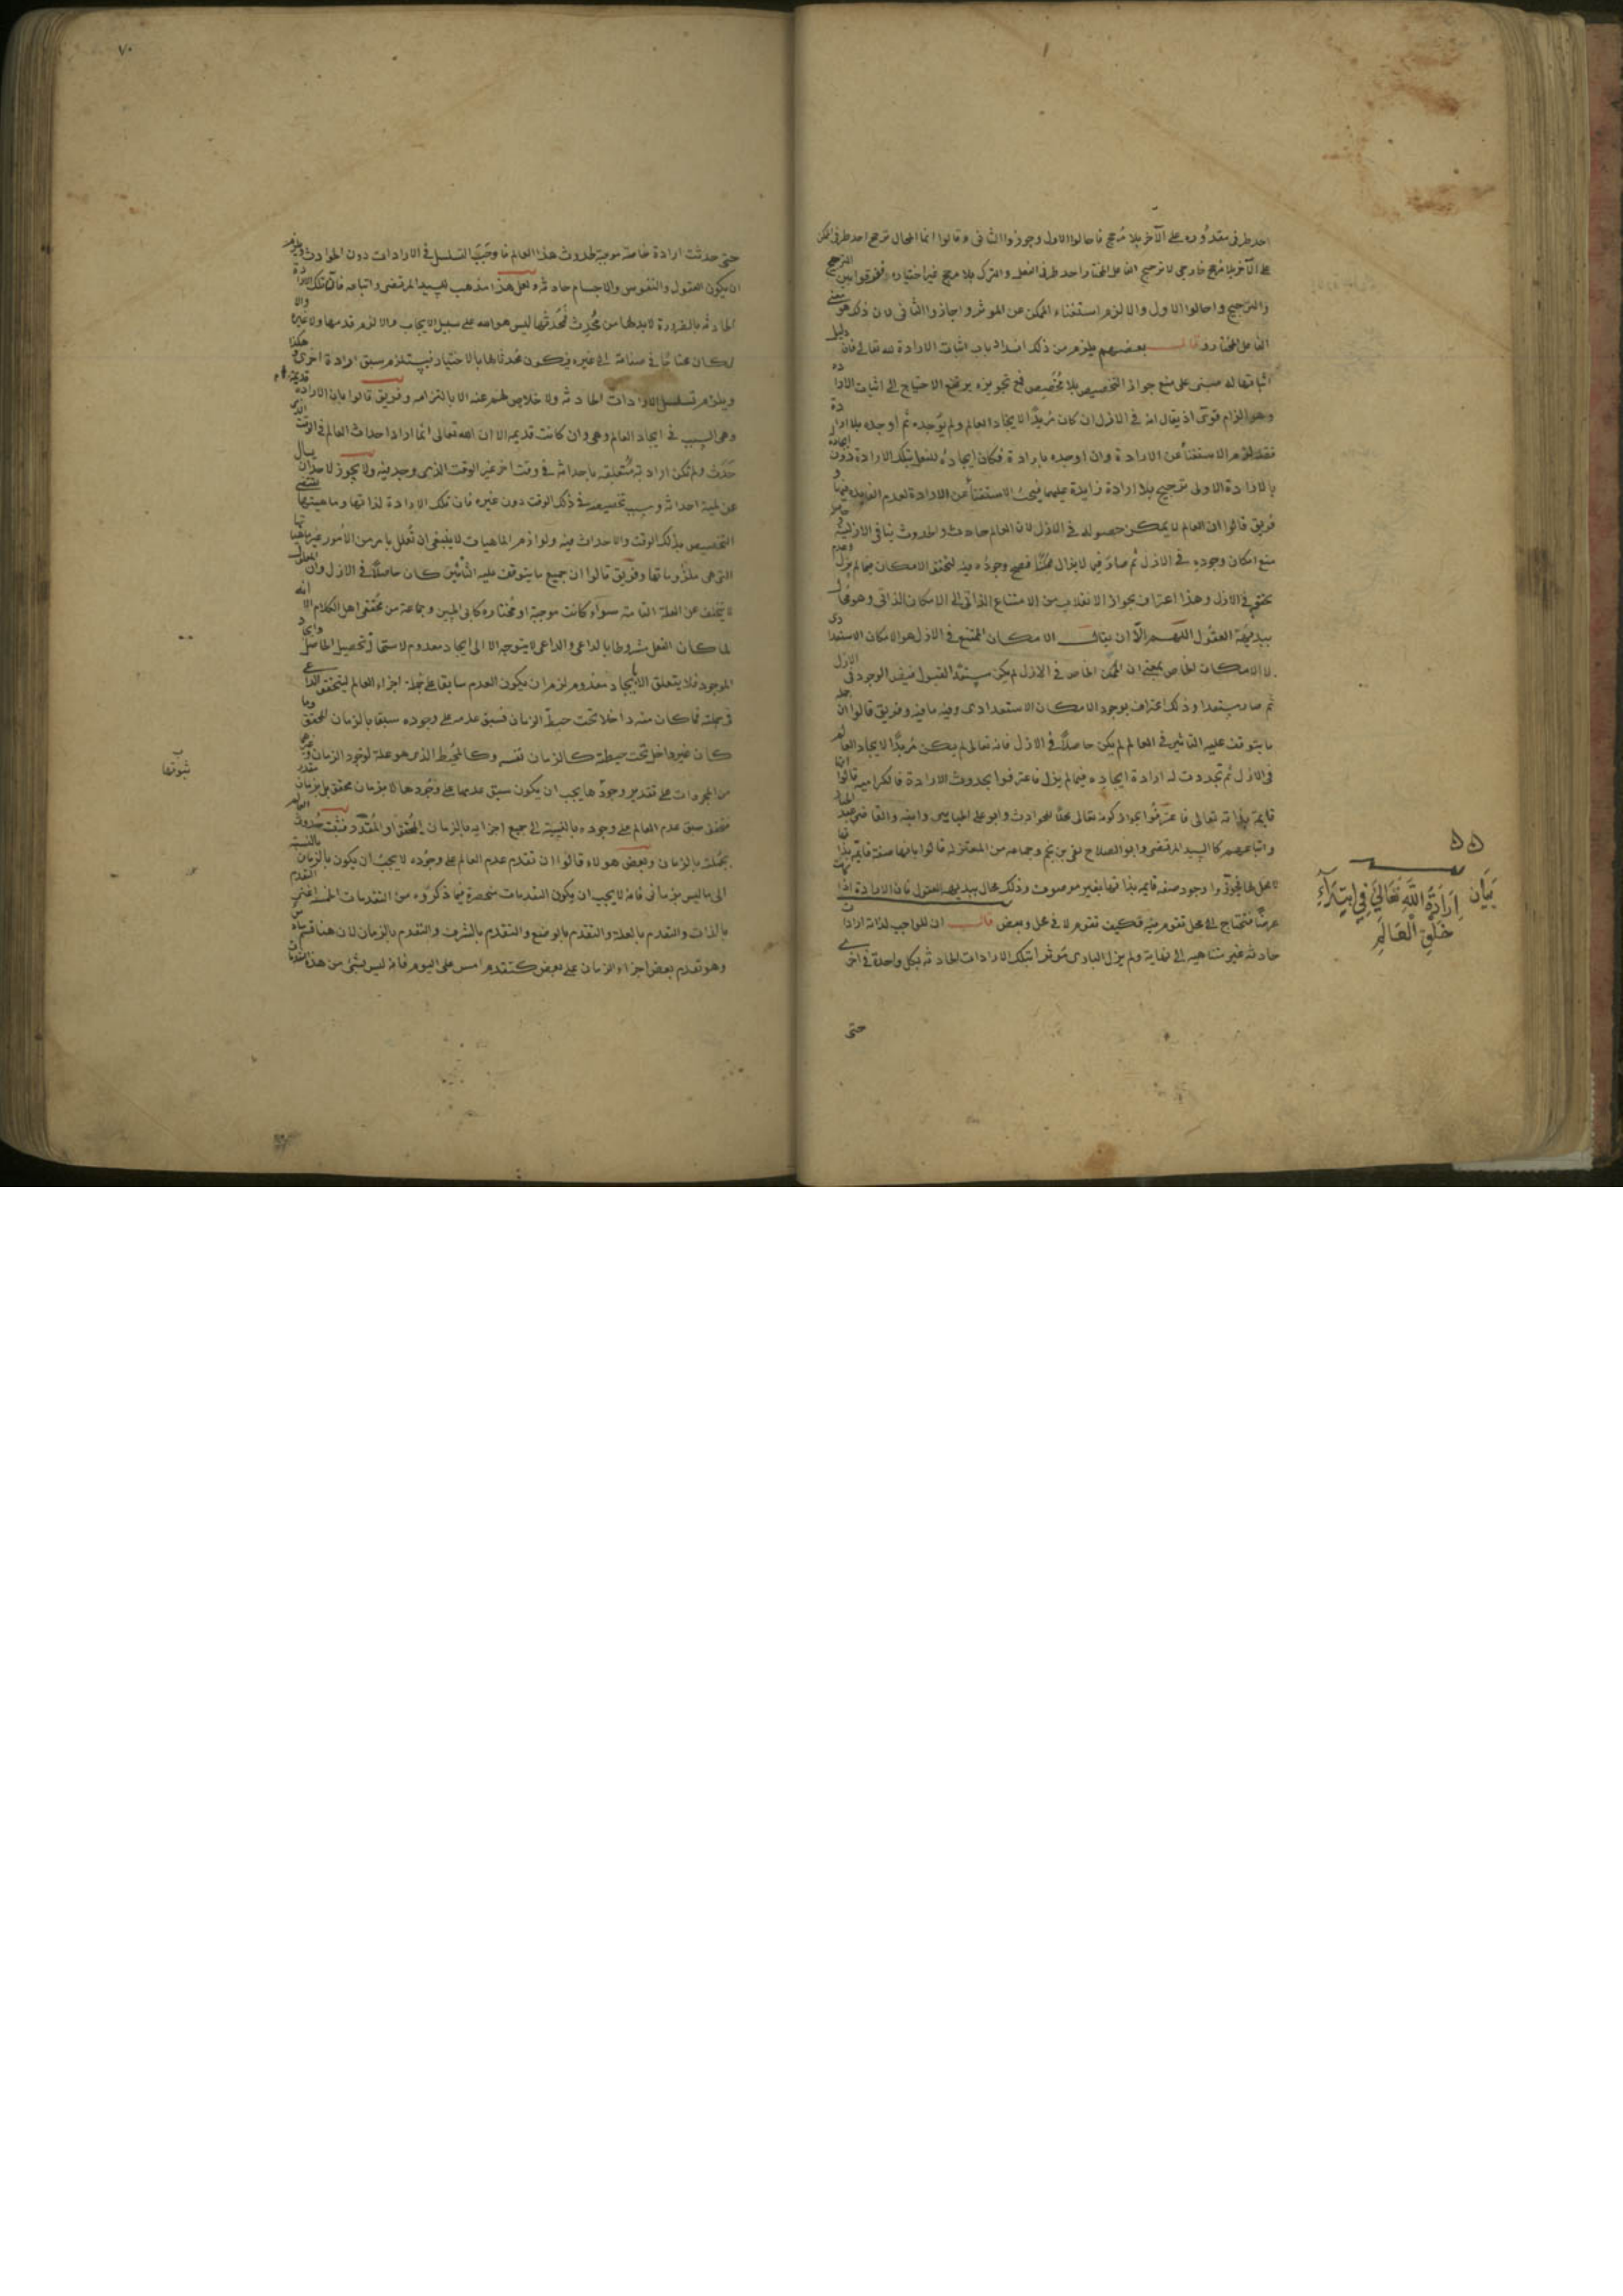 احد طرفى مقدوره على الآخر بلا مرجح فاحالوا الاول وجوزوا الثانى وقالوا انما المحال ترجح احد طرفى الممكن
على الآخر بلا مرجح خارجى لا ترجيح الفاعل المختار احد طرفى الفعل والترك بلا مرجح غير اختياره ففرقوا بين الترجح
والترجيح واحالوا الاول والا لزم استغناء الممكن عن الموثر واجازوا الثانى لان ذلك هو معنى
الفاعل المختار وقال بعضهم يلزم من ذلك انسداد باب اثبات الارادة لله تعالى فان دليل
اثباتها له مبنى على منع جواز التخصيص بلا مخصص فمع تجويزه يرتفع الاحتياج الى اثبات الارادة
وهو الزام قوى اذ يقال انه فى الازل ان كان مريدا لايجاد العالم ولم يوجده ثم اوجده بلا ارادة
فقد لزم الاستغناء عن الارادة وان اوجده بارادة فكان ايجاده للفعل بتلك الارادة دون ايجاده
بالارادة الاولى ترجيح بلا ارادة زايدة عليهما فيجئ الاستغناء عن الارادة لعدم الفايدة فيها و
فريق قالوا ان العالم لا يمكن حصوله فى الازل لان العالم حادث والحدوث ينافى الازلية
منع امكان وجوده فى الازل ثم صار فيما لا يزال ممكنا فصح وجوده فيه لتحقق الامكان فيما لم يزل وعدم
تحققه فى الازل وهذا اعتراف بجواز الانقلاب من الامتناع الذاتى الى الامكان الذاتى وهو محال
ببديهة العقول اللهم الا ان يقال الامكان الممتنع فى الازل هو الامكان الاستعدادى
لا الامكان الخاص بمعنى ان الممكن الخاص فى الازل لم يكن مستعدا لقبول فيض الوجود فى الازل
ثم صار مستعدا وذلك اعتراف بوجود الامكان الاستعدادى وفيه ما فيه وفريق قالوا ان جملة
ما يتوقف عليه التاثير فى العالم لم يكن حاصلا فى الازل فانه تعالى لم يكن مريدا لايجاد العالم
فى الازل ثم تجددت له ارادة ايجاده فيما لم يزل فاعترفوا بحدوث الارادة فالكرامية قالوا انها
قايمة بذاته تعالى فاعترفوا بجواز كونه تعالى محلا للحوادث وابو على الجبايى وابنه والقاضى عبد الجبار
واتباعهم كالسيد المرتضى وابو الصلاح تقى بن نجم وجماعه من المعتزله قالوا بانها صفة قايمة بذاتها
لا بمحل فجوزوا وجود صفه قايمه بذاتها بغير موصوف وذلك محال ببديهه العقول فان الارادة اذا كانت
عرضا فتحتاج الى محل تقوم فيه فكيف تقوم لا فى محل وبعض قال ان للواجب لذاته ارادات
حادثه غير متناهيه الى نهاية ولم يزل البارى موثرا بتلك الارادات الحادثه بكل واحدة فى اخرى
حتى
بيان ارادة الله تعالى فى ابتداء
خلق العالم
٧٠
حتى حدثت ارادة خاصة موجبة لحدوث هذا العالم فاوجب التسلسل فى الارادات دون الحوادث ويلزم
ان يكون العقول والنفوس والاجسام حادثه ولعل هذا مذهب للسيد المرتضى واتباعه فان تلك الارادة
الحادثه بالضرورة لا بد لها من محدث فمحدثها ليس هو الله على سبيل الايجاب والا لزم قدمها ولا غيره والا
لكان محتاجا فى صفاته الى غيره فيكون محدثا لها بالاختيار فيستلزم سبق ارادة اخرى وهكذا
ويلزم تسلسل الارادات الحادثه ولا خلاص لهم عنه الا بالتزامه وفريق قالوا بان الارادة قديمة
وهى السبب فى ايجاد العالم وهى وان كانت قديمه الا ان الله تعالى انما اراد احداث العالم فى الوقت الذى
حدث ولم تكن ارادته متعلقه باحداثه فى وقت اخر غير الوقت الذى وجد فيه ولا يجوز لاحد ان يسال
عن لمية احداثه وسبب تخصيصه فى ذلك الوقت دون غيره فان تلك الارادة لذاتها وماهيتها تقتضى
التخصيص بذلك الوقت والاحداث فيه ولوازم الماهيات لا ينبغى ان تعلل بامر من الامور غير ماهياتها
التى هى ملزوماتها وفريق قالوا ان جميع ما يتوقف عليه التاثير كان حاصلا فى الازل وان المعلول
لا يتخلف عن العلة التامة سواء كانت موجبة او مختارة كابى الحسين وجماعة من محققى اهل الكلام الا انه
لما كان الفعل مشروطا بالداعى والداعى لا يتوجه الا الى ايجاد معدوم لاستحالة تحصيل الحاصل وايجاد
الموجود فلا يتعلق الا بايجاد معدوم لزم ان يكون العدم سابقا على جملة اجزاء العالم ليتحقق الداعى
فى جملته فما كان منه داخلا تحت حيطة الزمان فسبق عدمه على وجوده سبقا بالزمان المحقق وما
كان غير داخل تحت حيطته كالزمان نفسه وكالمحيط الذى هو علة لوجود الزمان وغيرهما
من المجردات على تقدير وجودها يجب ان يكون سبق عدمها على وجودها لا بزمان محقق بل بزمان مقدر
فتحقق سبق عدم العالم على وجوده بالنسبة الى جميع اجزايه بالزمان المحقق او المقدر فثبت حدوث العالم
بجملته بالزمان وبعض هولاء قالوا ان تقدم عدم العالم على وجوده لا يجب ان يكون بالزمان بالنسبة
الى ما ليس بزمانى فانه لا يجب ان يكون التقدمات منحصرة فيما ذكروه من التقدمات الخمسة اعنى التقدم
بالذات والتقدم بالعلة والتقدم بالوضع والتقدم بالشرف والتقدم بالزمان لان هنا قسم سادس
وهو تقدم بعض اجزاء الزمان على بعض كتقدم امس على اليوم فانه ليس بشئ من هذه التقدمات
ثبوتها